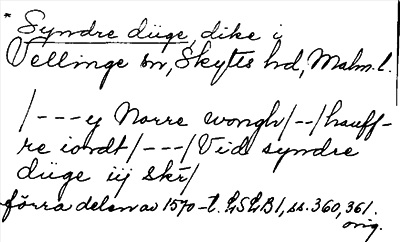 * Syndre düge, dike i
Vellinge sn, Skytts hd, Malm. l.
/---y Norre wongh/--/hauff-
re iordt/---/Vid syndre
düge iij skr/
förra delen av 1570-t. LSLB 1, ss. 360, 361.
orig.